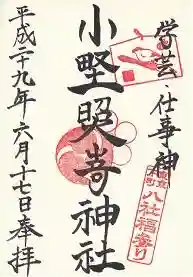 学芸・仕事神
小野照崎神社
平成二十九年六月十七日奉拝
八社福参り